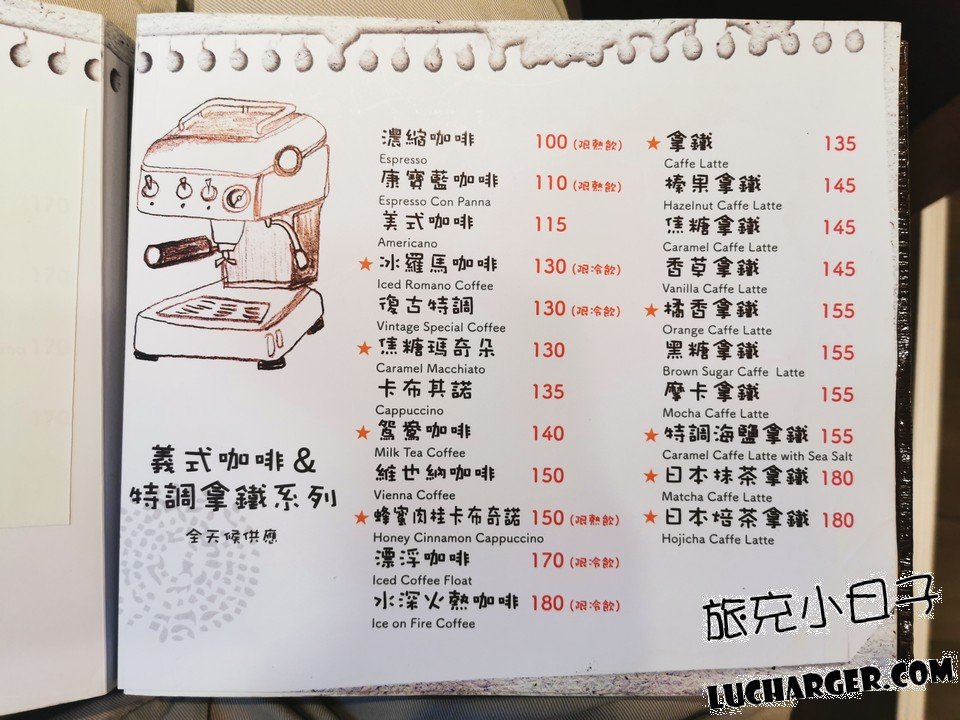 義式咖啡&
特調拿鐵系列
全天候供應
濃縮咖啡 100 (限熱飲)
Espresso
康寶藍咖啡 110 (限熱飲)
Espresso Con Panna
美式咖啡 115
Americano
★冰羅馬咖啡 130 (限冷飲)
Iced Romano Coffee
復古特調 130 (限冷飲)
Vintage Special Coffee
★焦糖瑪奇朵 130
Caramel Macchiato
卡布其諾 135
Cappuccino
★鴛鴦咖啡 140
Milk Tea Coffee
維也納咖啡 150
Vienna Coffee
★蜂蜜肉桂卡布奇諾 150 (限熱飲)
Honey Cinnamon Cappuccino
漂浮咖啡 170 (限冷飲)
Iced Coffee Float
水深火熱咖啡 180 (限冷飲)
Ice on Fire Coffee
★拿鐵 135
Caffe Latte
榛果拿鐵 145
Hazelnut Caffe Latte
焦糖拿鐵 145
Caramel Caffe Latte
香草拿鐵 145
Vanilla Caffe Latte
★橘香拿鐵 155
Orange Caffe Latte
黑糖拿鐵 155
Brown Sugar Caffe Latte
摩卡拿鐵 155
Mocha Caffe Latte
★特調海鹽拿鐵 155
Caramel Caffe Latte with Sea Salt
★日本抹茶拿鐵 180
Matcha Caffe Latte
★日本焙茶拿鐵 180
Hojicha Caffe Latte
旅充小日子
LUCHARGER.COM